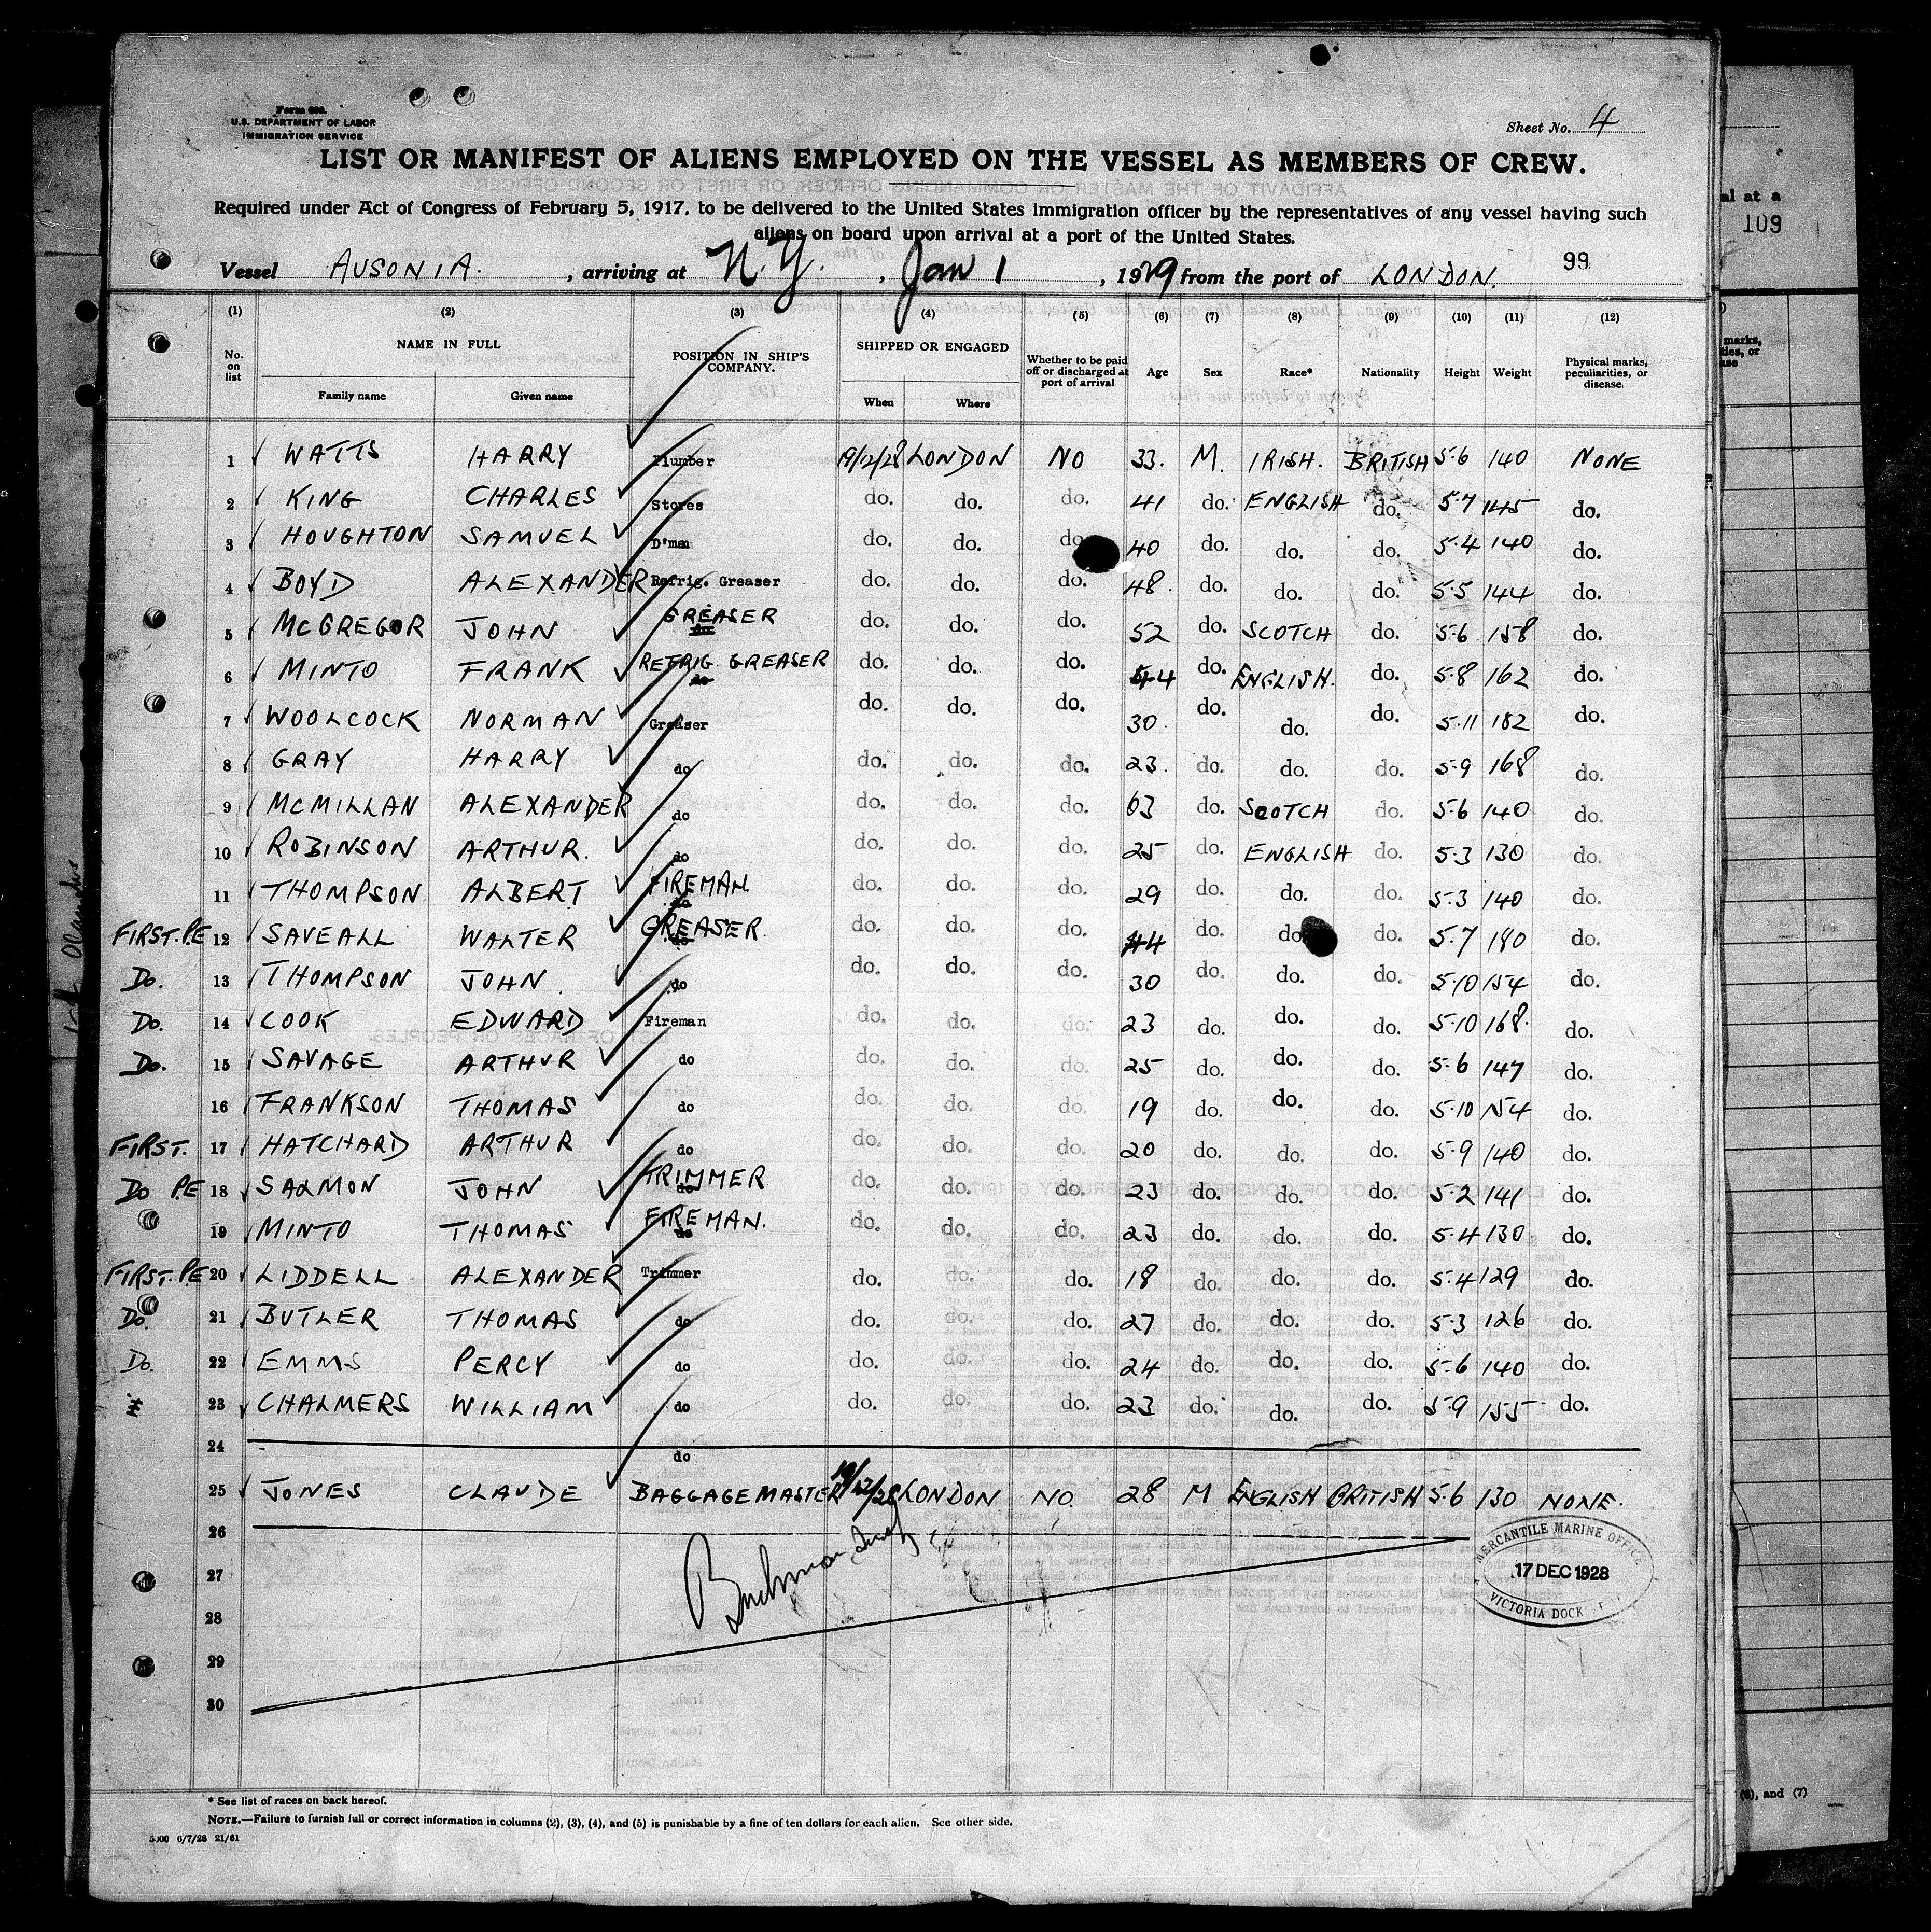 Form 680.
U.S. DEPARTMENT OF LABOR
IMMIGRATION SERVICE
Sheet No. 4
LIST OR MANIFEST OF ALIENS EMPLOYED ON THE VESSEL AS MEMBERS OF CREW.
Required under Act of Congress of February 5, 1917, to be delivered to the United States immigration officer by the representatives of any vessel having such
aliens on board upon arrival at a port of the United States.
al at a
109
99
Vessel AUSONIA. , arriving at N.Y. , Jan 1 , 1929 from the port of LONDON.
(1) (2) (3) (4) (5) (6) (7) (8) (9) (10) (11) (12)
No. on list NAME IN FULL Family name Given name POSITION IN SHIP'S COMPANY. SHIPPED OR ENGAGED When Where Whether to be paid off or discharged at port of arrival Age Sex Race* Nationality Height Weight Physical marks, peculiarities, or disease.
1 WATTS HARRY Plumber 19/12/28 LONDON NO 33. M. IRISH. BRITISH 5-6 140 NONE
2 KING CHARLES Stores do. do. do. 41 do. ENGLISH do. 5.7 145 do.
3 HOUGHTON SAMUEL D'man do. do. do. 40 do. do. do. 5.4 140 do.
4 BOYD ALEXANDER Refrig. Greaser do. do. do. 48. do. do. do. 5.5 144 do.
5 McGREGOR JOHN GREASER do do. do. do. 52 do. SCOTCH do. 5.6 158 do.
6 MINTO FRANK REFRIG. GREASER do do. do. do. 44 do. ENGLISH. do. 5.8 162 do.
7 WOOLCOCK NORMAN Greaser do. do. do. 30. do. do. do. 5.11 182 do.
8 GRAY HARRY do do. do. do. 23. do. do. do. 5-9 168 do.
9 McMILLAN ALEXANDER do do. do. do. 63 do. SCOTCH do. 5-6 140 do.
10 ROBINSON ARTHUR. do do. do. do. 25 do. ENGLISH do. 5.3 130 do.
11 THOMPSON ALBERT FIREMAN. do do. do. do. 29 do. do. do. 5.3 140 do.
FIRST. P.E 12 SAVEALL WALTER GREASER. do do. do. do. 44 do. do. do. 5.7 180 do.
Do. 13 THOMPSON JOHN. do do. do. do. 30 do. do. do. 5.10 154 do.
Do. 14 COOK EDWARD Fireman do. do. do. 23 do. do. do. 5.10 168. do.
Do. 15 SAVAGE ARTHUR do do. do. do. 25 do. do. do. 5.6 147 do.
16 FRANKSON THOMAS do do. do. do. 19 do. do. do. 5.10 154 do.
FIRST. 17 HATCHARD ARTHUR do do. do. do. 20 do. do. do. 5.9 140 do.
Do P.E 18 SALMON JOHN TRIMMER do do. do. do. 23 do. do. do. 5.2 141 do.
19 MINTO THOMAS FIREMAN. do do. do. do. 23 do. do. do. 5.4 130 do.
FIRST. P.E 20 LIDDELL ALEXANDER Trimmer do. do. do. 18 do. do. do. 5.4 129 do.
Do. 21 BUTLER THOMAS do do. do. do. 27 do. do. do. 5.3 126 do.
Do. 22 EMMS PERCY do do. do. do. 24 do. do. do. 5.6 140 do.
23 CHALMERS WILLIAM do do. do. do. 23 do. do. do. 5.9 155 do.
24 do
25 JONES CLAUDE BAGGAGE MASTER 19/12/28 LONDON. NO. 28 M ENGLISH BRITISH 5.6 130 NONE.
26
27
28
29
30
MERCANTILE MARINE OFFICE
17 DEC 1928
VICTORIA DOCK
* See list of races on back hereof.
NOTE.—Failure to furnish full or correct information in columns (2), (3), (4), and (5) is punishable by a fine of ten dollars for each alien. See other side.
5000 6/7/28 21/61
(6), and (7)